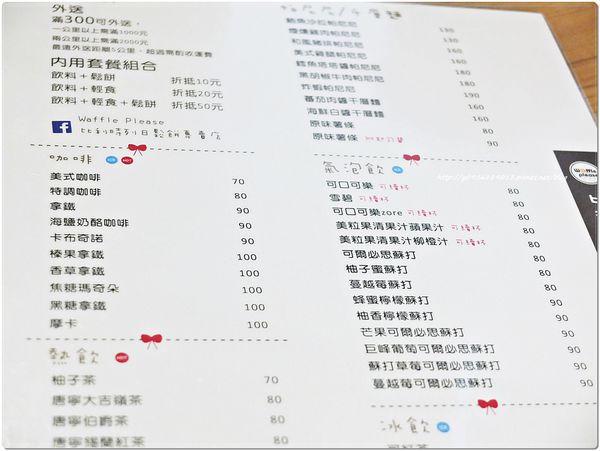 外送
滿300可外送,
一公里以上需滿1000元
兩公里以上需滿2000元
最遠外送距離5公里,超過需酌收運費
內用套餐組合
飲料+鬆餅 折抵10元
飲料+輕食 折抵20元
飲料+輕食+鬆餅 折抵50元
Waffle Please
比利時列日鬆餅專賣店
咖啡 ICE HOT
美式咖啡 70
特調咖啡 80
拿鐵 90
海鹽奶酪咖啡 90
卡布奇諾 90
榛果拿鐵 100
香草拿鐵 100
焦糖瑪奇朵 100
黑糖拿鐵 100
摩卡 100
熱飲 HOT
柚子茶 70
唐寧大吉嶺茶 80
唐寧伯爵茶 80
唐寧錫蘭紅茶 80
鮪魚沙拉帕尼尼 130
燻雞帕尼尼 130
和風豬排帕尼尼 160
美式雞腿帕尼尼 160
鱈魚塔塔醬帕尼尼 160
黑胡椒牛肉帕尼尼 180
炸蝦帕尼尼 160
蕃茄肉醬千層麵 190
海鮮白醬千層麵 190
原味薯條 60
原味薯條 90
氣泡飲 ICE
可口可樂 可續杯 80
雪碧 可續杯 80
可口可樂zore 可續杯 80
美粒果清果汁蘋果汁 可續杯 80
美粒果清果汁柳橙汁 可續杯 80
可爾必思蘇打 80
柚子蜜蘇打 80
蔓越莓蘇打 80
蜂蜜檸檬蘇打 90
柚香檸檬蘇打 90
芒果可爾必思蘇打 90
巨峰葡萄可爾必思蘇打 90
蘇打草莓可爾必思蘇打 90
蔓越莓可爾必思蘇打 90
冰飲 ICE
waffle please